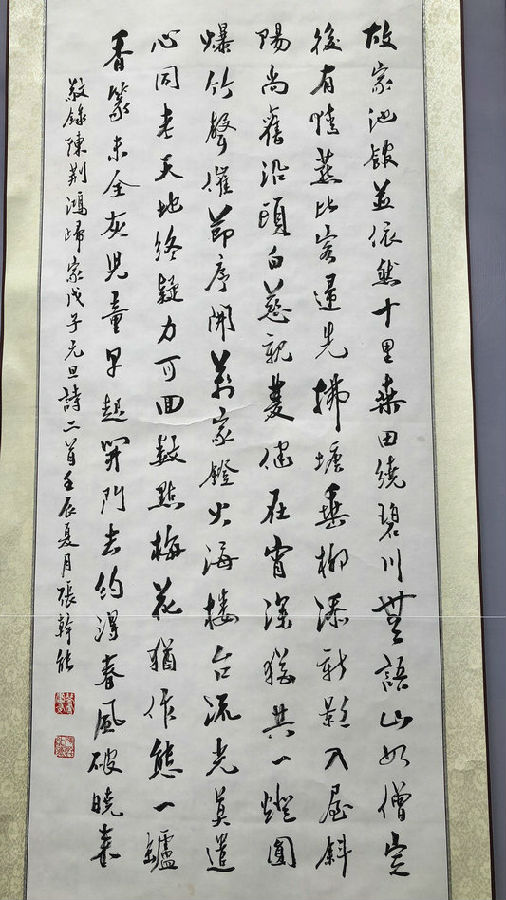 故家池館并依然十里桑田繞碧川無語山如僧定
後有情燕比客還先拂塘垂柳添新影入屋斜
陽尚舊沿頭白慈親夢健在宵深猶共一燈圓
爆竹聲催節序開萬家燈火海樓台流光莫遣
心同老天地終疑力可回數點梅花猶作態一爐
香篆未全灰兒童早起開門去約得春風破曉來
敬錄陳荆鴻歸家戊子元旦詩二首壬辰夏月張幹能